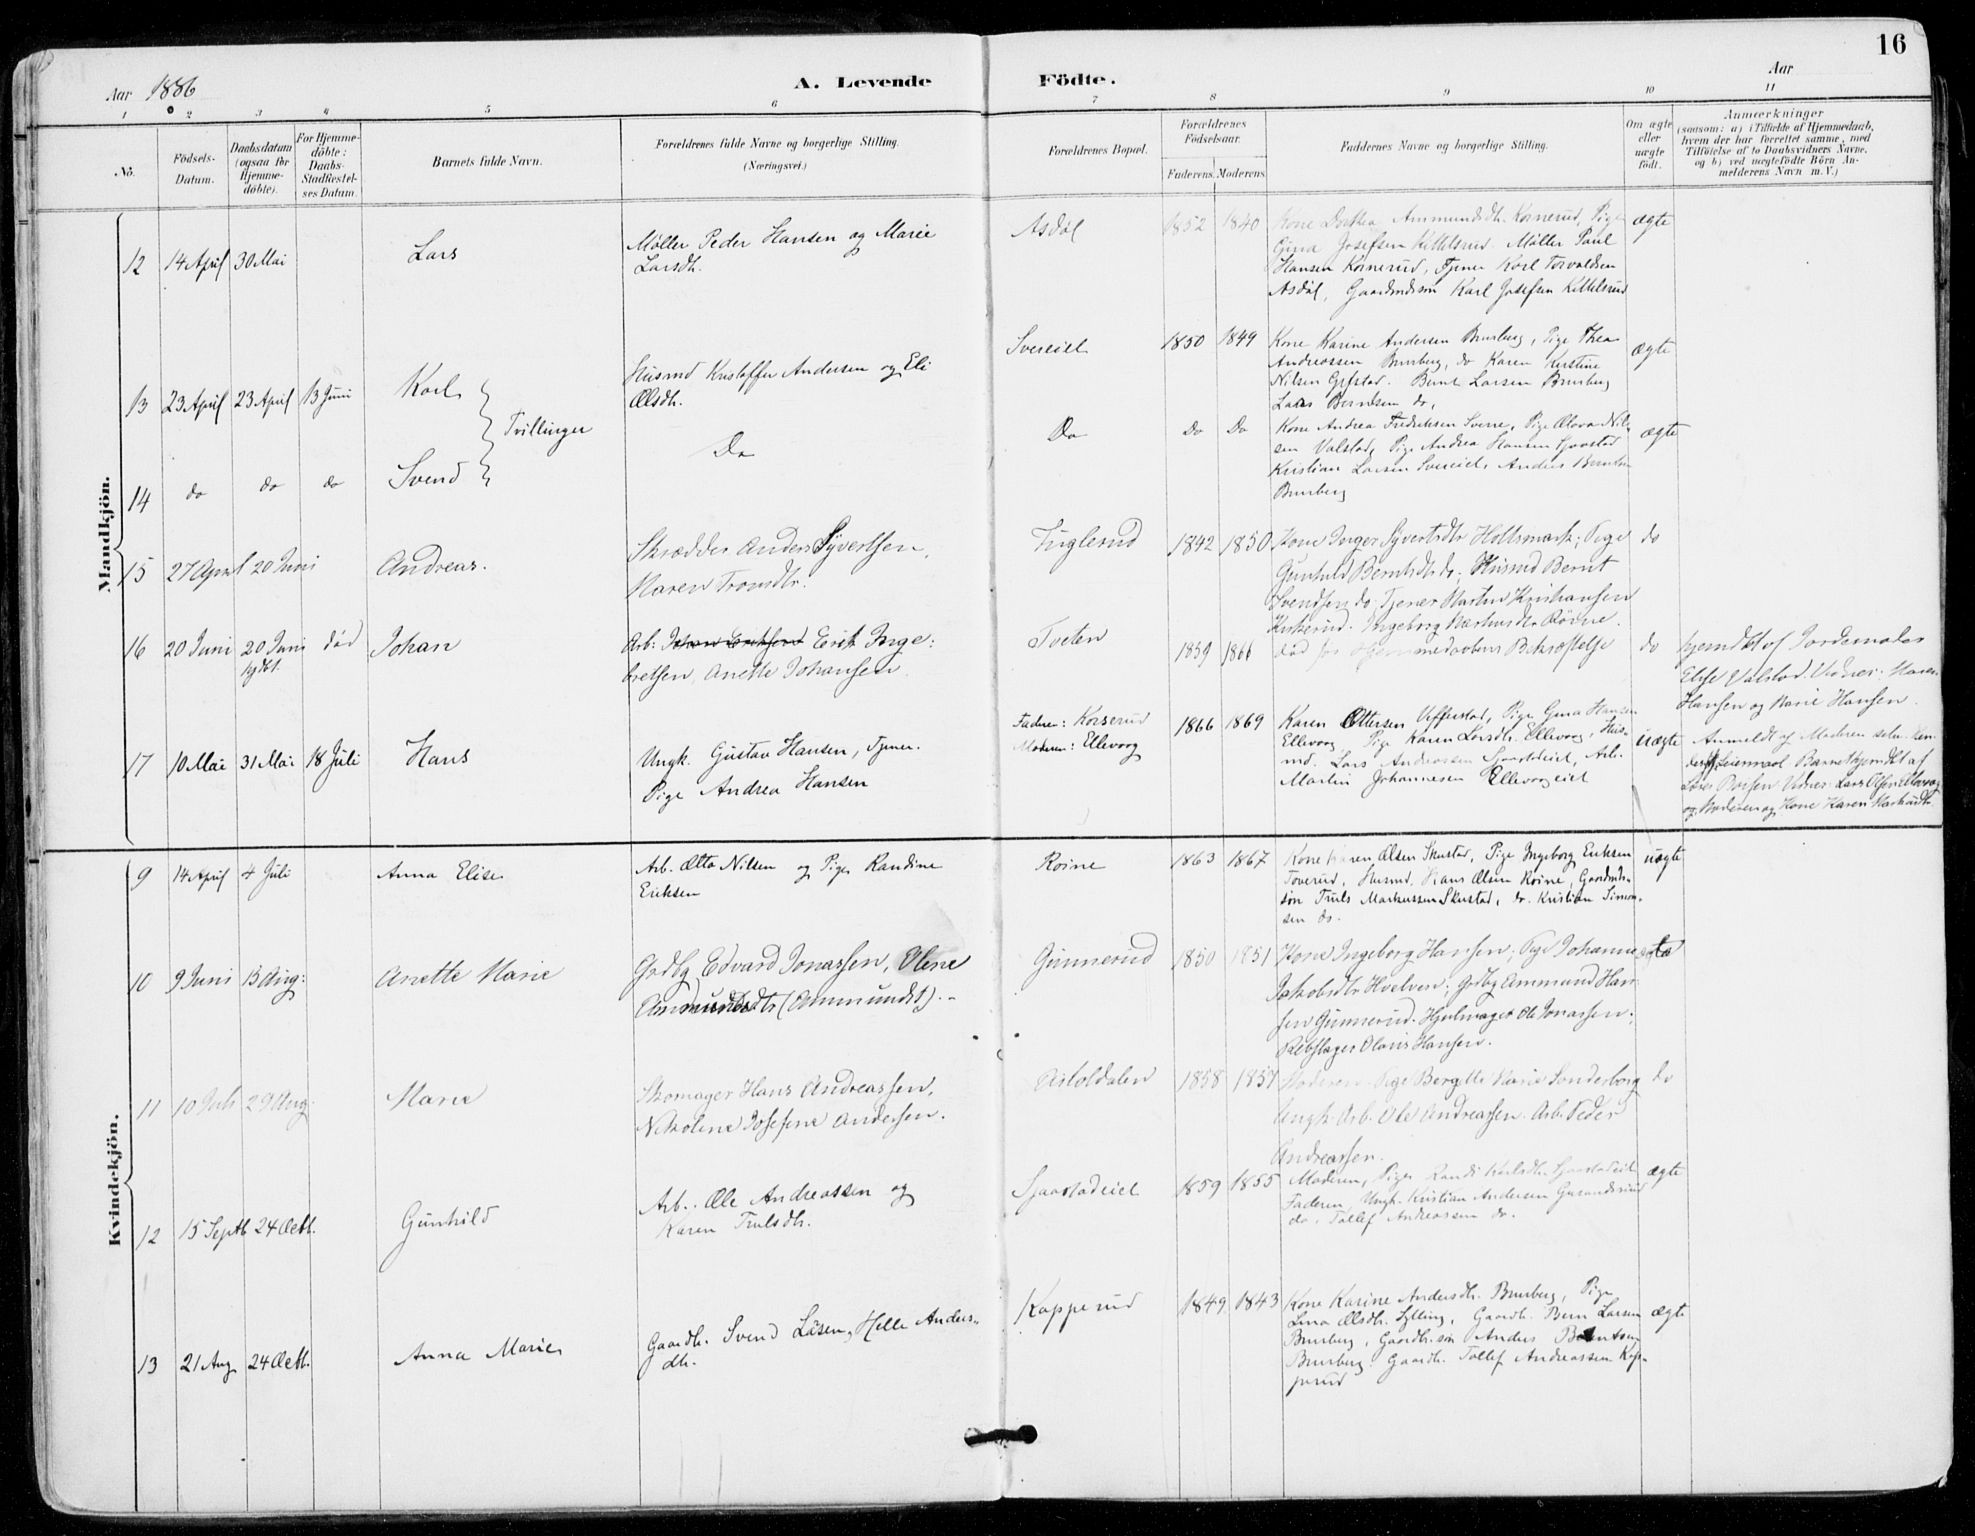 16
Aar 1886
A. Levende Födte.
Aar
1 2 3 4 5 6 7 8 9 10 11
No.
Födsels-Datum.
Daabsdatum (ogsaa for Hjemme-döbte).
For Hjemme-döbte: Daabs-Stadfæstel-ses Datum.
Barnets fulde Navn.
Forældrenes fulde Navne og borgerlige Stilling.
(Næringsvei.)
Forældrenes Bopæl.
Forældrenes Födselsaar.
Faderens. Moderens.
Faddernes Navne og borgerlige Stilling.
Om ægte eller uægte födt.
Anmærkninger
(saasom: a) i Tilfælde af Hjemmedaab,
hvem der har forrettet samme, med
Tilföielse af to Daabsvidners Navne,
og b) ved uægtefödte Börn An-
melderens Navn m. V.)
Mandkjön.
12 14 April 30 Mai Lars
Møller Peder Hansen og Marie
Larsdh.
Asdøl 1852 1840
Kone Dorthea Ammundsdh. Kornerud, Pige
Gina Josefsen Kittelsrud. Møller Paul
Hansen Kornerud, Tjener Karl Torvaldsen
Asdøl, Gaardmdssøn Karl Josefsen Kittelsrud
ægte
13 23 April 23 April 13 Juni Karl
Tvillinger
Husmd Kristoffer Andersen og Eli
Olsdh.
Svereiet 1850 1849
Kone Karine Andersen Bursberg, Pige Thea
Andreassen Bursberg, do Karen Kirstine
Nilsen Grfstad. Bernt Larsen Bursberg
Lars Berntsen do,
ægte
14 do do do Svend
Do
Do Do Do
Kone Andrea Fredriksen Sverre, Pige Olava Nil-
sen Valstad, Pige Andrea Hansen Sjaastad
Kristian Larsen Svereiet, Anders Berntsen
Bursberg
ægte
15 27 April 20 Juni Andreas.
Skrædder Anders Syvertsen,
Maren Tromsdtr.
Fuglerud 1842 1850
Kone Inger Syvertsdtr Holtsmark; Pige
Gunhild Berntsdtr do; Husmd Bernt
Svendsen do; Tjener Martin Kristiansen
Kirkerud. Ingeborg Mathisdtr Röine.
do
16 20 Juni 20 Juni hjdbt. död Johan
Arb: Johan Eriksen Erik Inge:
bretsen, Anette Johansen.
Tveten 1859 1866
död för Hjemmedaabens Bekræftelse
do
hjemdbt af Jordemoder
Elise Valstad. Vidner: Maren
Hansen og Marie Hansen.
17 10 Mai 31 Mai 18 Juli Hans
Ungk. Gustav Hansen, Tjener.
Pige Andrea Hansen
Faderen: Korserud
Moderen: Ellevog
1866 1869
Karen Ottersen Ufferstad, Pige Gina Hansen
Ellevog, Pige Karen Larsdh. Ellevog, Hus-
md. Lars Andreassen Sjaastadeiet, Arb.
Martin Johannesen Ellevogeiet
uægte
Anmeldt af Moderen selv.
Leiermaal Barnet hjemdbt af
Vidner: Lars Olsen Ellevog
og Moderen og Kone Karen
Kvindekjön.
9 14 April 4 Juli Anna Elise
Arb. Otto Nilsen og Pige Randine
Eriksen
Roine 1863 1867
Kone Karen Olsen Skustad, Pige Ingeborg Eriksen
Toverud, Husmd. Hans Olsen Roine, Gaardmds-
søn Truls Markussen Skustad, do. Kristian Simon-
sen do.
uægte
10 9 Juni 15 Aug: Anette Marie
Grdbg Edvard Jonassen, Oline
Ammundsdtr (Ammundst).-
Gunnerud 1850 1851
Kone Ingeborg Hansen; Pige Johanne
Jakobsdtr Hvelven; Grdbg Ammund Han-
sen Gunnerud. Hjulmager Ole Jonassen;
Rebslager Olavis Hansen.
ægte
11 10 Juli 29 Aug. Marie
Skomager Hans Andreassen,
Nikoline Josefine Andersen.
Asdøldalen 1858 1857
Moderen. Pige Bergette Marie Sønderborg
Ungk. Arb. Ole Andreassen. Arb. Peder
Andreassen.
do
12 15 Septb 24 Octb. Gunhild
Arb. Ole Andreassen og
Karen Trulsdh.
Sjaastadeiet 1859 1855
Moderen, Pige Randi Karlsdh. Sjaastadeiet
Faderen, Ungk. Kristian Andersen Guranderud
do. Tollef Andreassen do.
ægte
13 21 Aug 24 Octb. Anna Marie
Gaardb. Svend Låsen, Helle Anders-
dh.
Kopperud 1849 1843
Kone Karine Andersdh. Bursberg, Pige
Lina Olsdh. Sylling, Gaardb. Bern Larsen
Bursberg, Gaardb. søn Anders Berntsen
Bursberg. Gaardb. Tollef Andreassen Kop-
perud
ægte